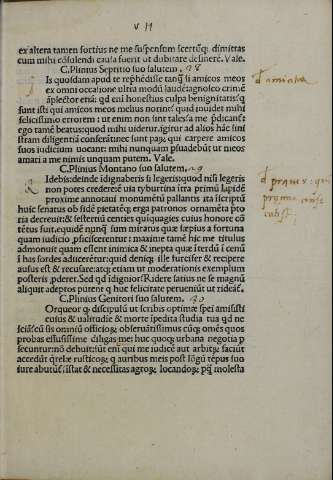 V II
ex altera tamen fortius ne me suspensum incertūq; dimittas
cum mihi cōsulendi causa fuerit ut dubitare desinerē. Vale.
C. Plinius Septitio suo salutem. 28
Is quosdam apud te rephēdisse tanq̄ si amicos meos
ex omni occasione ultra modū laudē tagnosco crimē
āplector etiā: qd eni honestius culpa benignitatis?q
sunt isti qui amicos meos melius norint? quid inuidet mihi
felicissimo errorem: ut enim non sint tales: a me p̄dicant̄:
ego tamē beatus: quod mihi uidetur. igitur ad alios hāc sini
stram diligentiā conferāt: nec sunt pauci qui carpere amicos
suos iudicium uocant: mihi nunquam p̄suadebūt ut meos
amari a me nimis unquam putem. Vale.
C. Plinius Montano suo salutem. 29
Idebis: deinde idignaberis si legeris: quod nisi legeris
non potes credere ē uia tyburtina itra primū lapidē
proxime annotaui monumētū pallantis ita iscriptū
huic senatus ob fidē pietatēq; erga patronos ornamēta pto
ria decreuit & sestertiū centies quiquagies cuius honore cō
tētus fuit. equidē nunq̄ sum miratus quæ sæpius a fortuna
quam iudicio p̄ficiscerentur: maxime tamē hic me titulus
admonuit quam essent inimica & inepta quæ iterdū ī cenū
ī has sordes adiicerētur: quid deniq; ille furcifer & recipere
ausus est & recusare: atq; etiam ut moderationis exemplum
posteris pdere. Sed qd idignior? Ridere satius ne se magnū
aliquit adeptos putent q huc felicitate perueniūt ut rideāt̄.
C. Plinius Genitori suo salutem. 30
Orqueor q discipulū ut scribis optimæ spei amisisti
cuius & ualitudie & morte īpedita studia tua qd ne
sciā? cū sis omniū officioȝ obseruātissimus cūq; omēs quos
probas effusissime diligas me huc quoq; urbana negotia p
secuntur: nō desunt: sūt eni qui me iudicē aut arbitȝ faciūt
accedūt qrelæ rusticoȝ q auribus meis post lōgū tēpus suo
iure abutūt̄: istat & necessitas agroȝ locandoȝ pq molesta